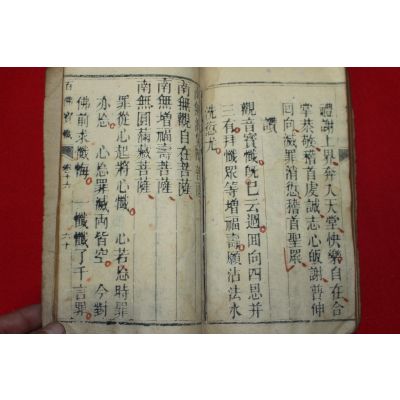 禮謝上界奔入天堂快樂自在合
掌恭敬稽首虔誠志心皈謝普伸
回向滅罪消愆稽首聖眾
讚
觀音寶懺旣已云週回向四恩并
三有拜懺眾等增福壽願沾法水
洗愆尤
南無增福壽菩薩
南無圓滿藏菩薩
南無觀自在菩薩
罪從心起將心懺 心若忘時罪
亦忘 心忘罪滅両皆空 今對
佛前求懺悔 一懺懺了千言罪
六十